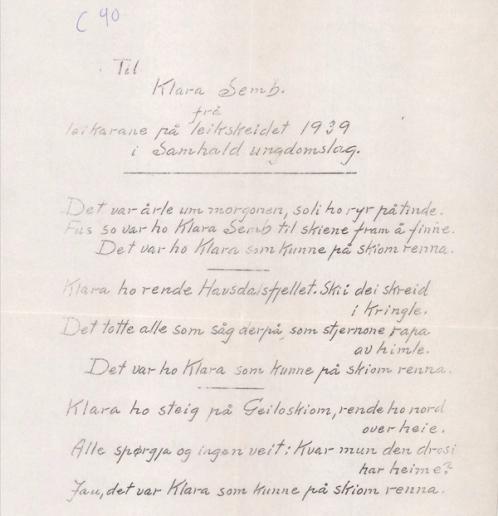 C 40
Til
Klara Semb.
frå
leikarane på leikskeidet 1939
i Samhald ungdomslag.
Det var årle um morgonen, soli ho ryr på tinde.
Fus so var ho Klara Semb til skiene fram å finne.
Det var ho Klara som kunne på skiom renna.
Klara ho rende Havsdalsfjellet. Skii dei skreid
i Kringle.
Det totte alle som såg derpå, som stjernone rapa
av himle.
Det var ho Klara som kunne på skiom renna.
Klara ho steig på Geiloskiom, rende ho nord
over heie.
Alle spørgja og ingen veit: Kvar mun den drosi
har heime?
Jau, det var Klara som kunne på skiom renna.